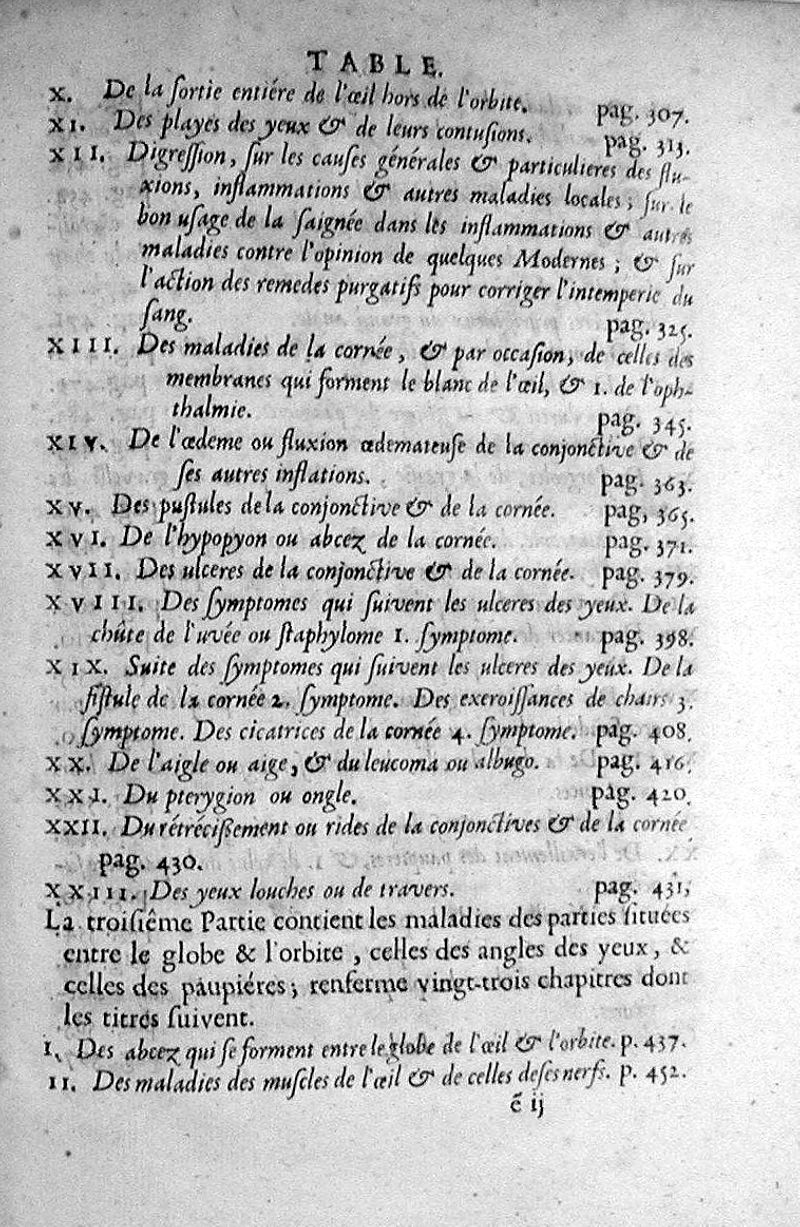 TABLE.
X. De la ſortie entiére de l'œil hors de l'orbite. pag. 307.
XI. Des playes des yeux & de leurs contuſions. pag. 313.
XII. Digreſſion, ſur les cauſes générales & particulieres des flu-
xions, inflammations & autres maladies locales; ſur le
bon uſage de la ſaignée dans les inflammations & autres
maladies contre l'opinion de quelques Modernes; & ſur
l'action des remedes purgatifs pour corriger l'intemperie du
ſang. pag. 325.
XIII. Des maladies de la cornée, & par occaſion, de celles des
membranes qui forment le blanc de l'œil, & 1. de l'oph-
thalmie. pag. 345.
XIV. De l'œdeme ou fluxion œdemateuſe de la conjonctive & de
ſes autres inflations. pag. 363.
XV. Des puſtules de la conjonctive & de la cornée. pag, 365.
XVI. De l'hypopyon ou abcez de la cornée. pag. 371.
XVII. Des ulceres de la conjonctive & de la cornée. pag. 379.
XVIII. Des ſymptomes qui ſuivent les ulceres des yeux. De la
chûte de l'uvée ou ſtaphylome 1. ſymptome. pag. 398.
XIX. Suite des ſymptomes qui ſuivent les ulceres des yeux. De la
fiſtule de la cornée 2. ſymptome. Des exeroiſſances de chairs 3.
ſymptome. Des cicatrices de la cornée 4. ſymptome. pag. 408.
XX. De l'aigle ou aige, & du leucoma ou albugo. pag. 416.
XXI. Du pterygion ou ongle. pag. 420.
XXII. Du rétréciſſement ou rides de la conjonctives & de la cornée
pag. 430.
XXIII. Des yeux louches ou de travers. pag. 431,
La troiſiême Partie contient les maladies des parties ſituées
entre le globe & l'orbite, celles des angles des yeux, &
celles des paupiéres; renferme vingt-trois chapitres dont
les titres ſuivent.
I. Des abcez qui ſe forment entre le globe de l'œil & l'orbite. p. 437.
II. Des maladies des muſcles de l'œil & de celles de ſes nerfs. p. 452.
ẽ ij